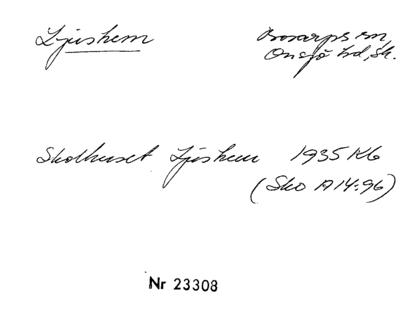 Ljushem
Bosarps sn,
Onsjö hd, Sk.
Skolhuset Ljushem 1935 Kb
(Sko A 14:96)
Nr 23308